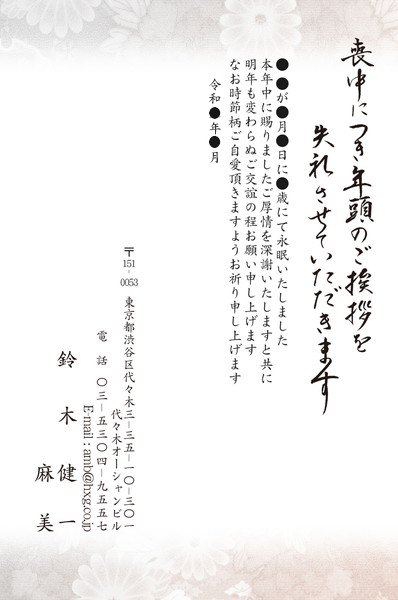 喪中につき年頭のご挨拶を
失礼させていただきます
●●が●月●日に●歳にて永眠いたしました
本年中に賜りましたご厚情を深謝いたしますと共に
明年も変わらぬご交誼の程お願い申し上げます
なお時節柄ご自愛頂きますようお祈り申し上げます
令和●年●月
〒151-0053 東京都渋谷区代々木三-三五-一〇-三〇一
代々木オーシャンビル
電話 〇三-五三〇四-九五五七
E-mail : amb@hxg.co.jp
鈴木健一
麻美